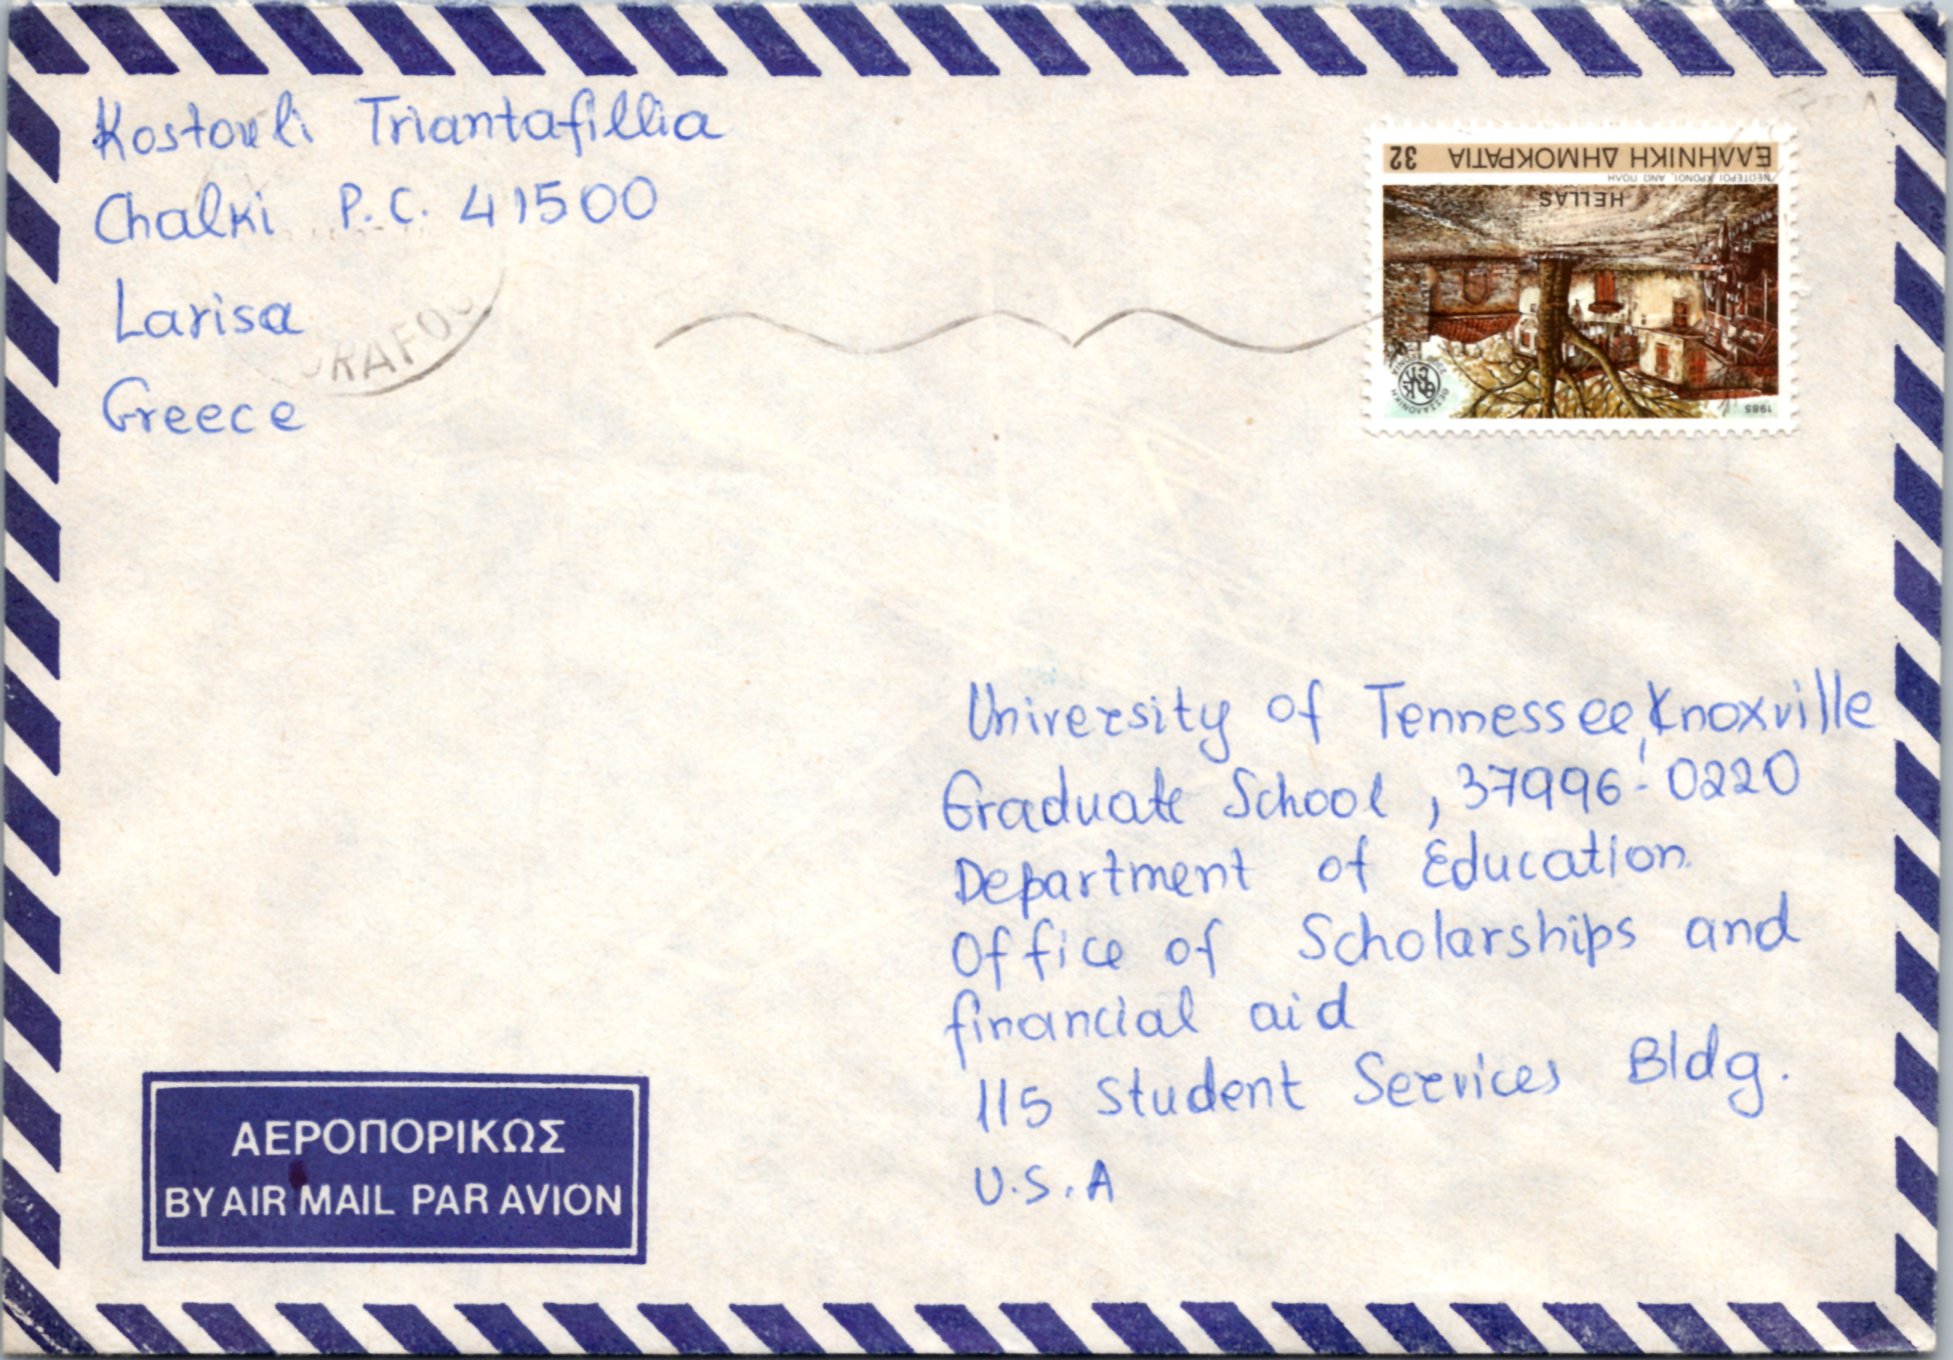 Kostouli Triantafillia
Chalki P.C. 41500
Larisa
Greece
RAFO
ΕΛΛΗΝΙΚΗ ΔΗΜΟΚΡΑΤΙΑ 32
ΝΕΩΤΕΡΟΙ ΧΡΟΝΟΙ, ΑΝΩ ΠΟΛΗ
HELLAS
ΘΕΣΣΑΛΟΝΙΚΗ 2300 ΧΡΟΝΙΑ
1985
University of Tennessee, Knoxville
Graduate School, 37996-0220
Department of Education
Office of Scholarships and
financial aid
115 Student Services Bldg.
U.S.A
ΑΕΡΟΠΟΡΙΚΩΣ
BY AIR MAIL PAR AVION